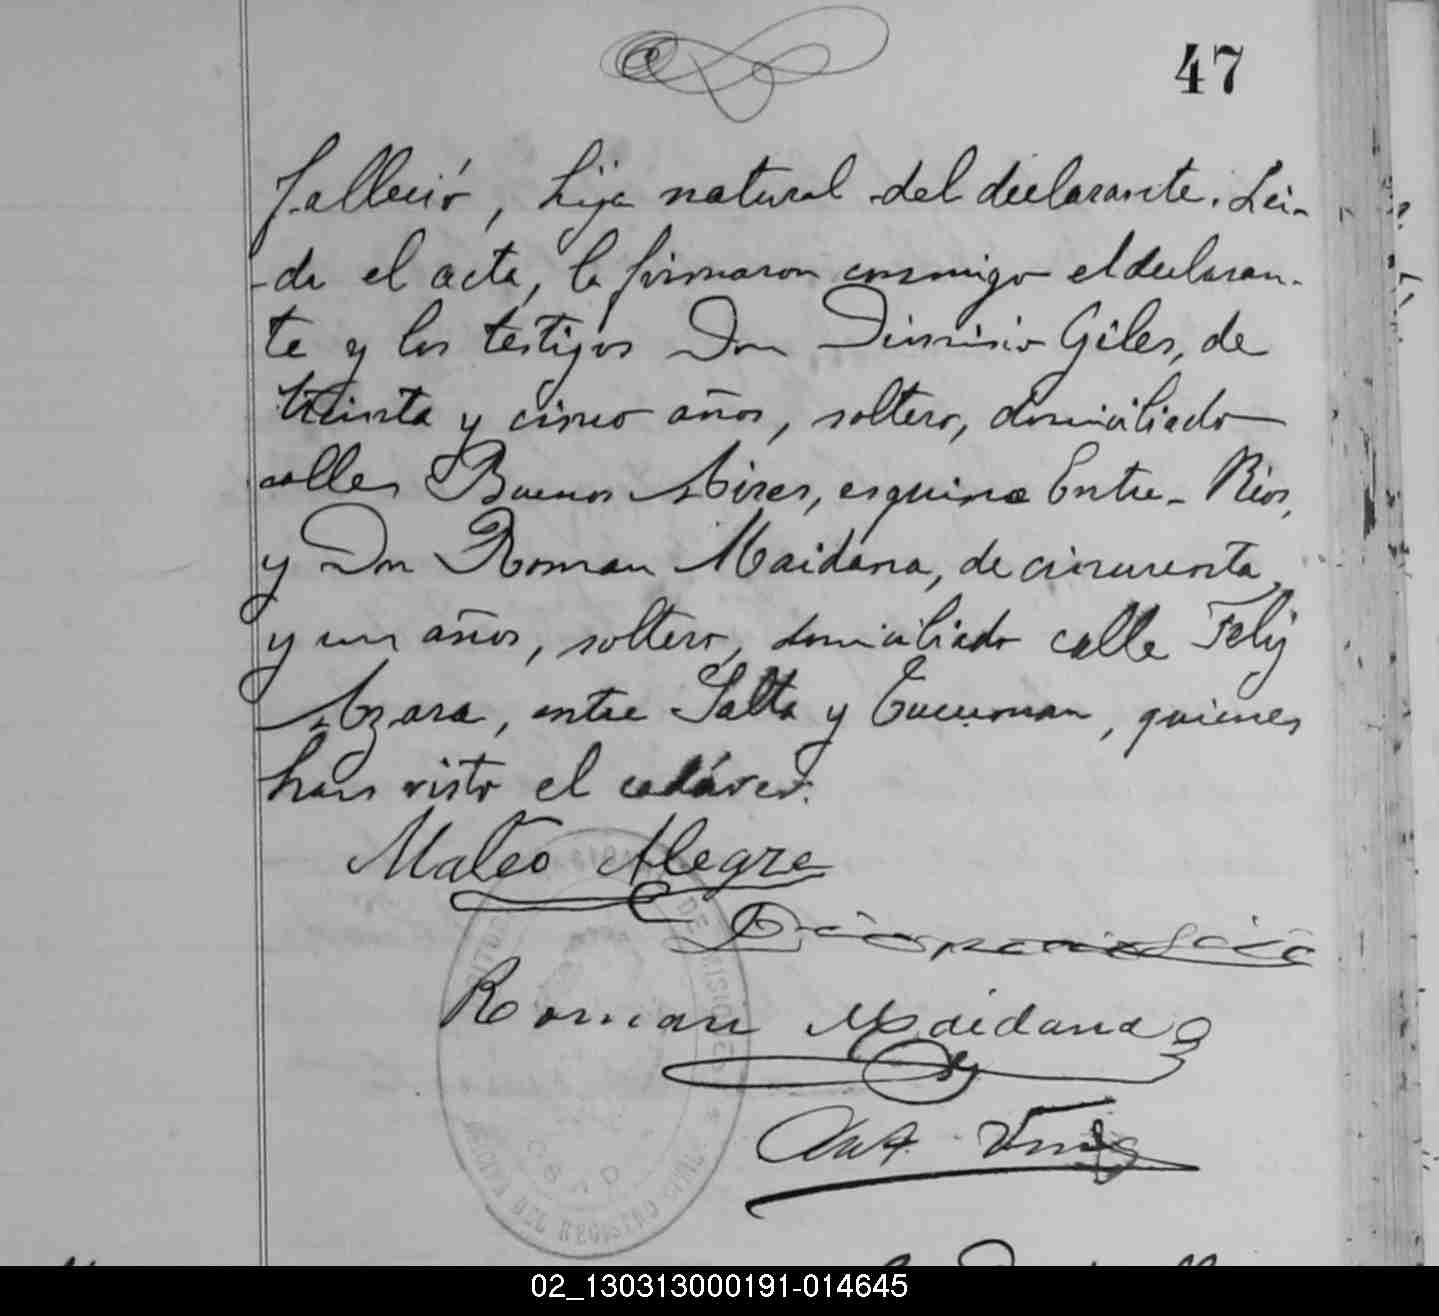 47
falleció, hija natural del declarante. Lei-
-da el acta, la firmaron conmigo el declaran-
te y los testigos Don Dionisio Giles, de
treinta y cinco años, soltero, domiciliado
calles Buenos Aires, esquina Entre-Rios,
y Don Roman Maidana, de cincuenta
y un años, soltero, domiciliado calle Felix
Azara, entre Salta y Tucuman, quienes
han visto el cadáver.
Mateo Alegre
Roman Maidana
DEL REGISTRO CIVIL
DE MISIONES
02_130313000191-014645